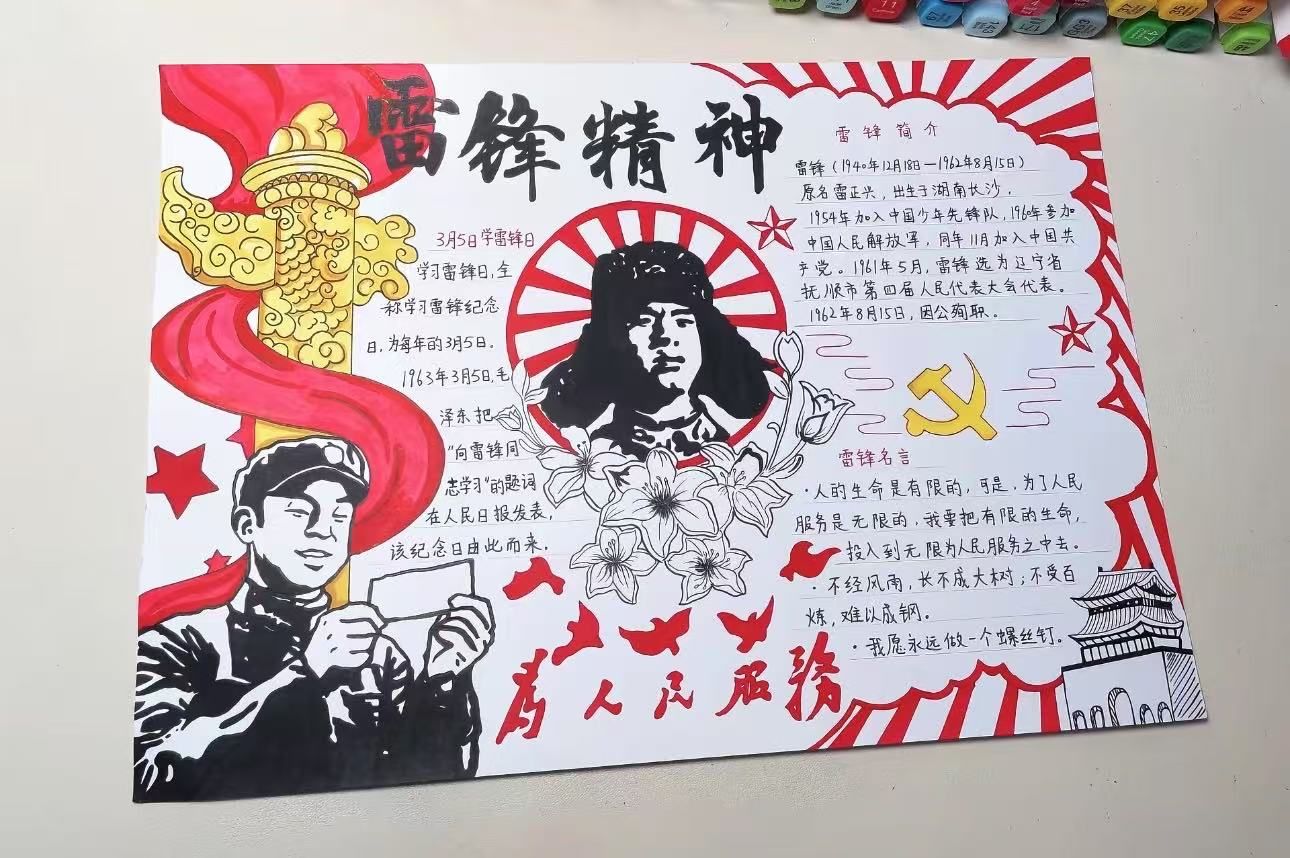 雷锋精神
3月5日学雷锋日
学习雷锋日,全
称学习雷锋纪念
日,为每年的3月5日。
1963年3月5日,毛
泽东把
“向雷锋同
志学习”的题词
在人民日报发表,
该纪念日由此而来.
雷锋简介
雷锋(1940年12月18日—1962年8月15日)
原名雷正兴,出生于湖南长沙,
1954年加入中国少年先锋队,1960年参加
中国人民解放军,同年11月加入中国共
产党。1961年5月,雷锋选为辽宁省
抚顺市第四届人民代表大会代表。
1962年8月15日,因公殉职。
雷锋名言
·人的生命是有限的,可是,为了人民
服务是无限的,我要把有限的生命,
投入到无限为人民服务之中去。
·不经风雨,长不成大树;不受百
炼,难以成钢。
·我愿永远做一个螺丝钉.
为人民服務